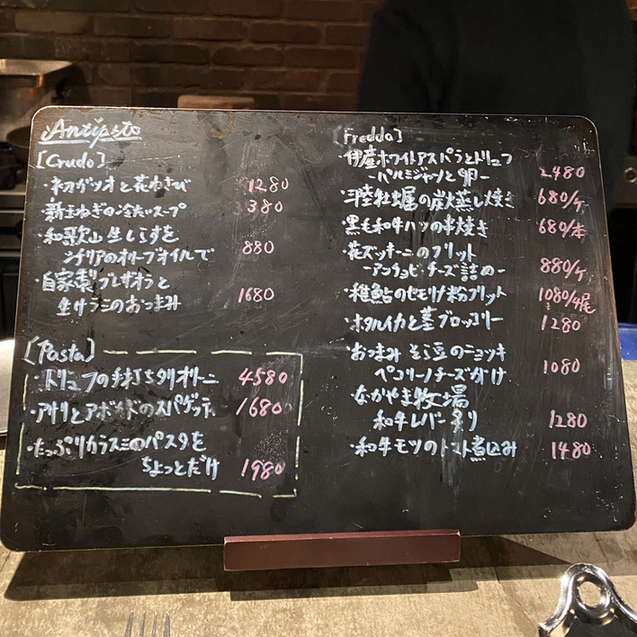 Antipasto
[Crudo]
・初ガツオと花わさび 1280
・新玉ねぎの冷たいスープ 380
・和歌山生しらすを
シチリアのオリーブオイルで 880
・自家製ブレザオラと
生サラミのおつまみ 1680
[Pasta]
・トリュフの手打ちタリオリーニ 4580
・アサリとアボカドのスパゲッティ 1680
・たっぷりカラスミのパスタを
ちょっとだけ 1980
[Freddo]
伊産ホワイトアスパラとトリュフ
-パルミジャーノと卵- 2480
・三陸牡蠣の炭蒸し焼き 680/ケ
黒毛和牛ハツの串焼き 680/本
花ズッキーニのフリット
-アンチョビ・チーズ詰め- 880/ケ
・稚鮎のセモリナ粉フリット 1080/4尾
・ホタルイカと茎ブロッコリー 1280
・おつまみ そら豆のニョッキ
ペコリーノチーズがけ 1080
なかやま牧場
和牛レバー炙り 1280
・和牛モツのトマト煮込み 1480